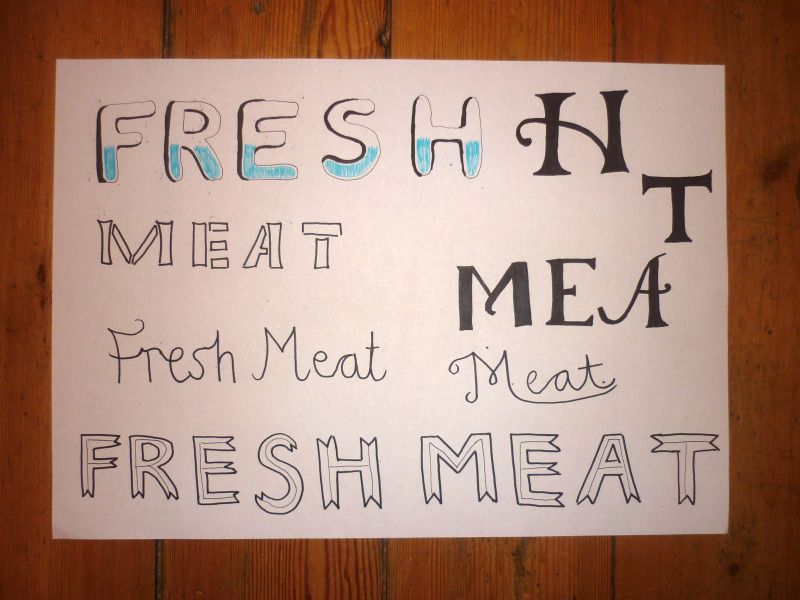 FRESH H
T
MEAT
MEA
Fresh Meat
Meat
FRESH MEAT